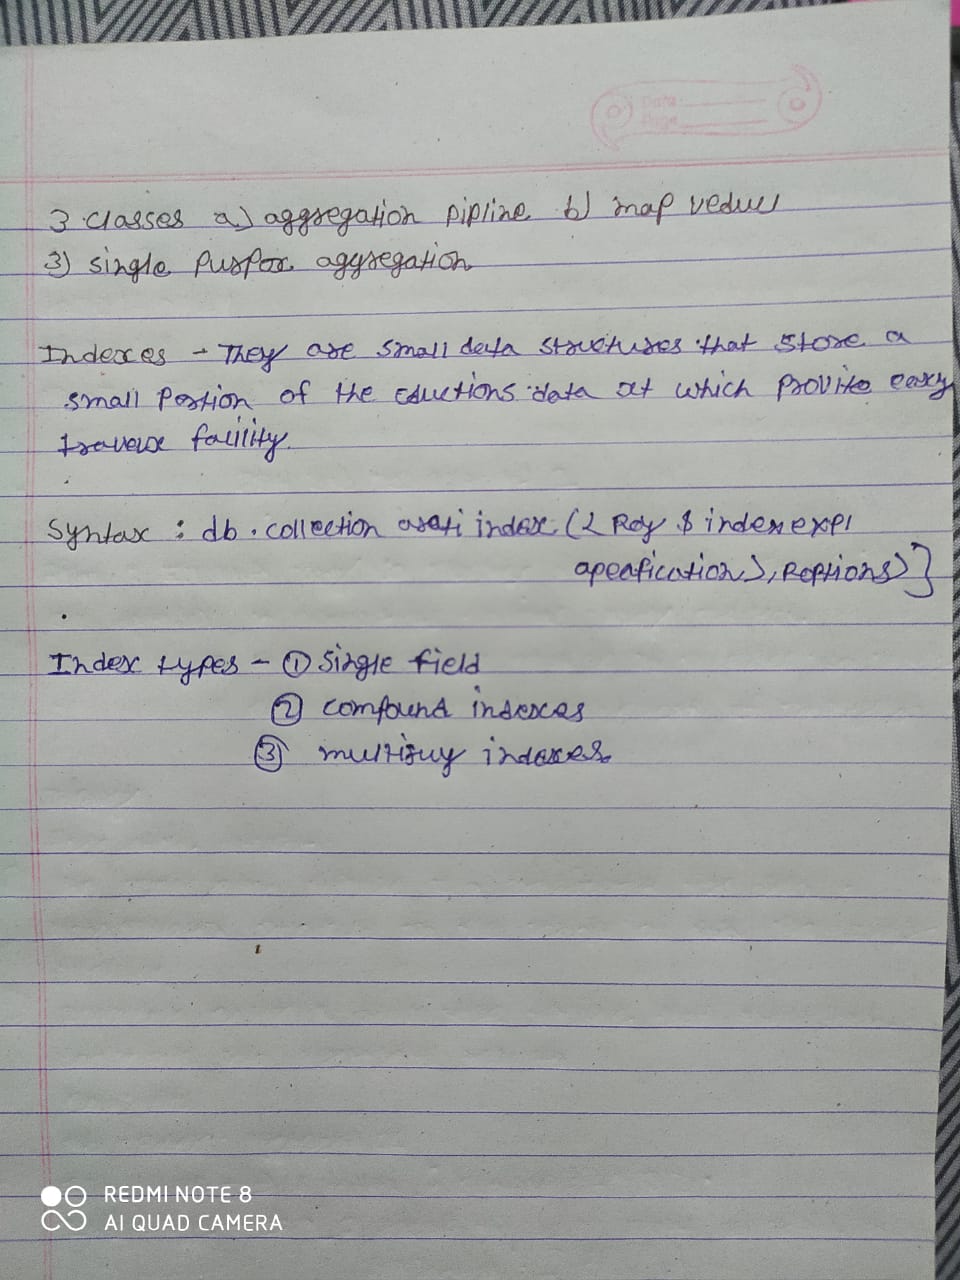 Date
Page
3 classes a) aggregation pipline b) map reduce
3) single purpose aggregation
Indexes - They are small data structures that store a
small portion of the data at which provite easy
facility.
Syntax : db.collection index ({ &
options)}
Index types - ① single field
② compound indexes
③ indexes.
REDMI NOTE 8
AI QUAD CAMERA